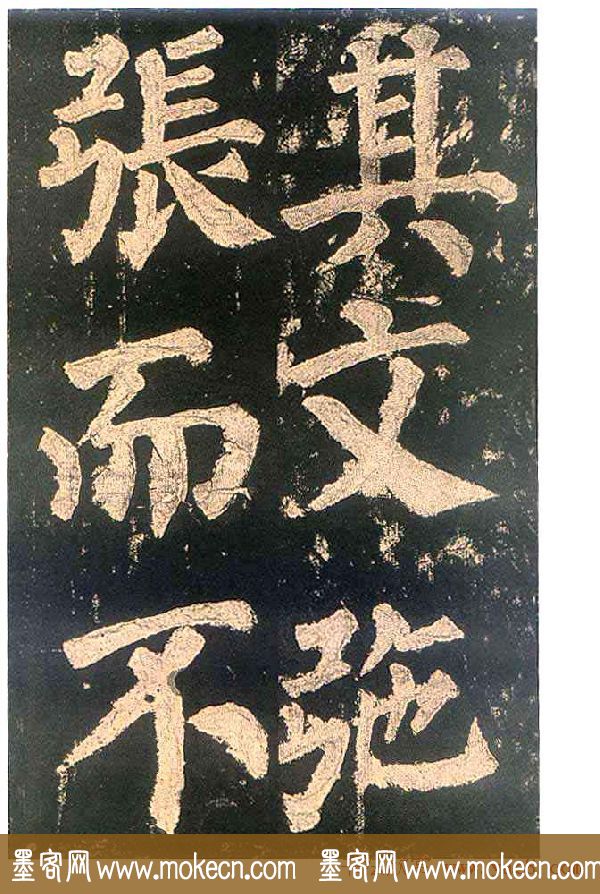 其文弛
張而不
墨客网 www.mokecn.com 墨客网 www.mokecn.com